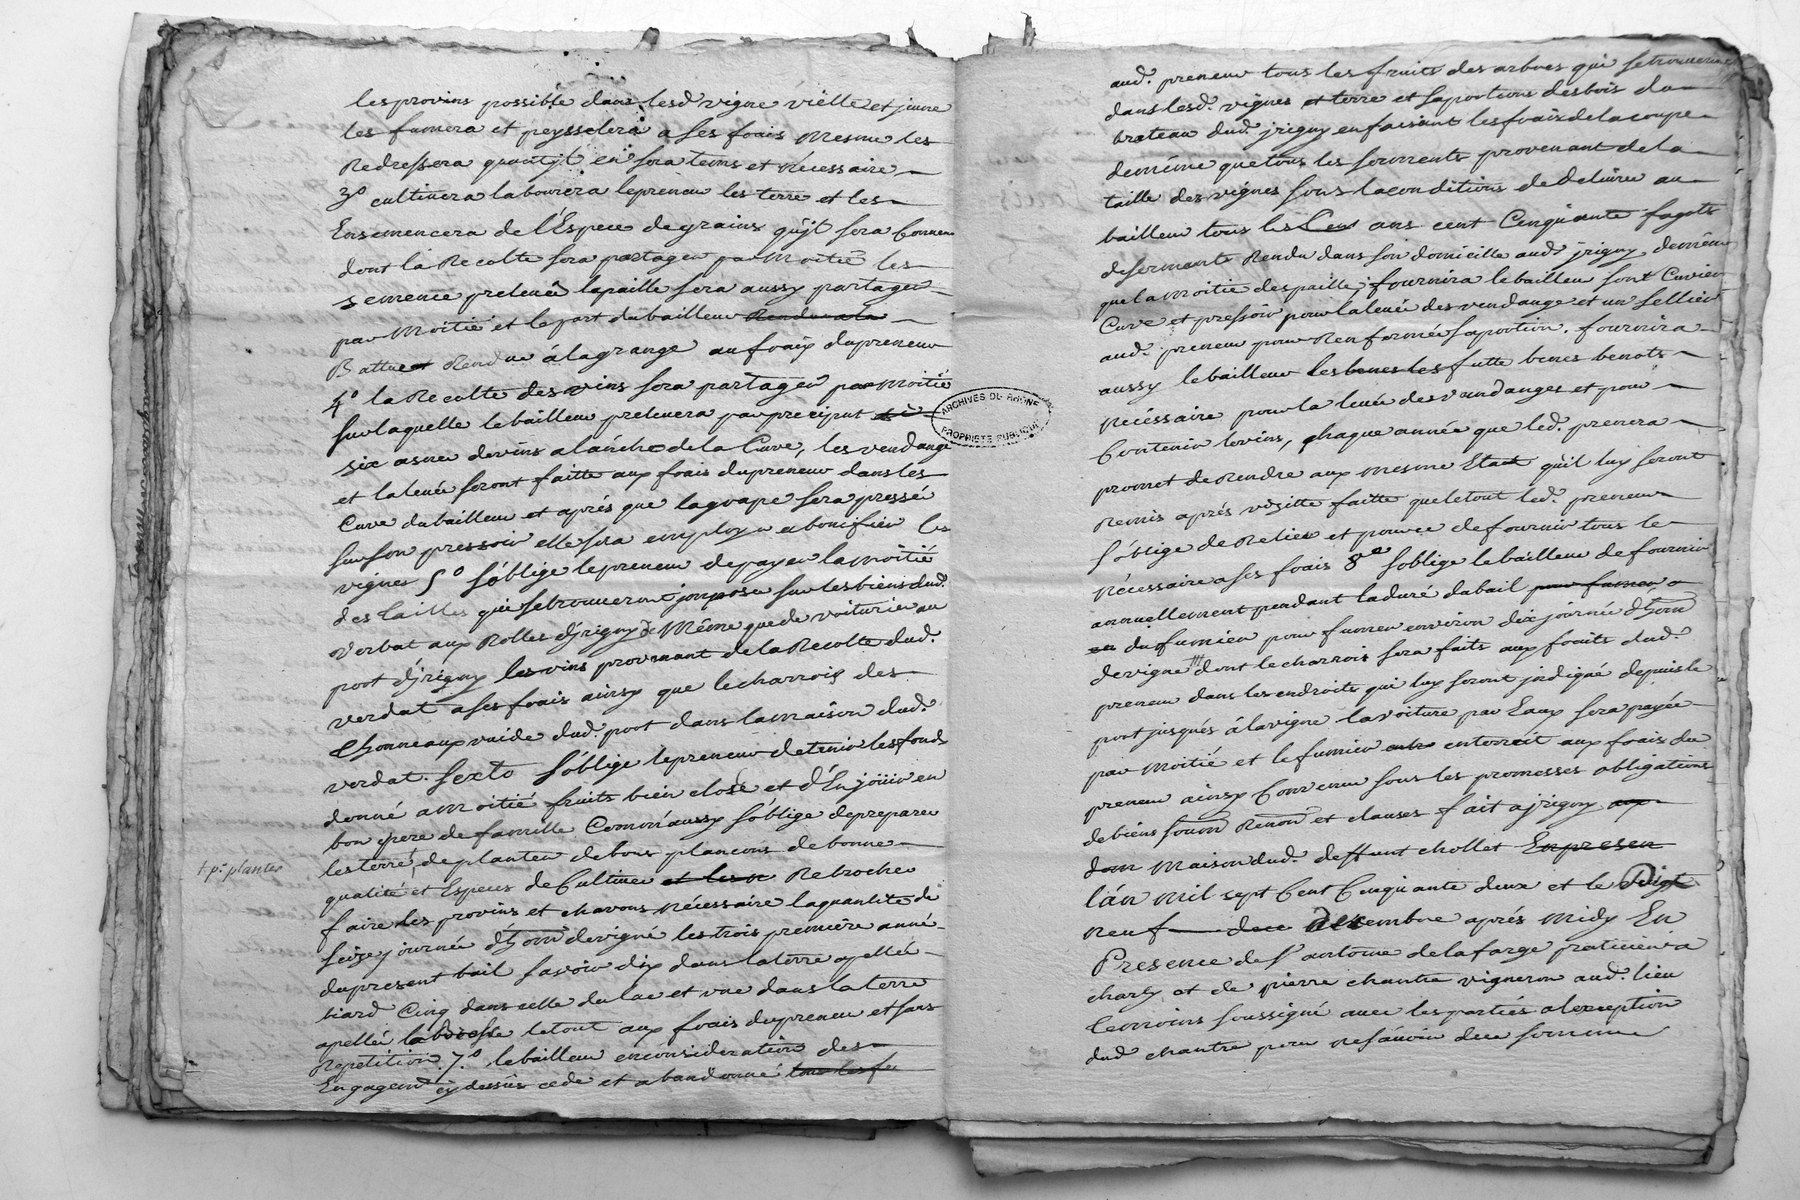 les provins possible dans lesd vigne viëlle et jeune
les fumera et peysselera a ses frais mesme les
Redressera quantjl en sera tems et necessaire
3° cultivera labourera lepreneur les terre et les
Ensemencera de l'Espece de grains qu'jl sera Convenu
dont la Recolte sera partager par moitié les
semence prelevée la paille sera aussy partager
par moitié et la part du bailleur Rendue a la
Battue et Rendue à la grange au fraix du preneur
4° la Recolte des vins sera partager par moitié
sur laquelle le bailleur prelevera par preciput
six asnée de vins a lanche de la Cuve, les vendange
et la levée seront faitte aux frais du preneur dans les
Cuve du bailleur et aprés que la grape sera pressée
sur son pressoir elle sera employer a bonifier les
vignes 5° s'oblige le preneur de payer la moitié
des tailles qui se trouveront jmposer sur les biens dud.
Verdat aux Rolles d'jrigny de Même que de voiturer au
port d'jrigny les vins provenant de la Recolte dud.
verdat a ses frais ainsy que le charrois des
thonneaux vuide dud. port dans la maison dud.
verdat. Sexto s'oblige le preneur de tenir les fonds
donné a moitié fruits bien close et d'En joüir en
bon pere de famille Comm'aussy s'oblige de preparer
les terre, de planter de bons plancons de bonne
+ p.r planter
qualité et Especes de Cultiver et les Rebrocher
faire les provins et chavons nécessaire la quantité de
seize journée d'hom devigne les trois première anné
du present bail savoir dix dans la terre apellé
biard Cinq dans celle du lac et une dans la terre
apellée la Bresse le tout aux frais du preneur et sans
Repetition. 7.° le bailleur en consideration des
Engagem cy dessus cede et abandonne tous les fr
aud. preneur tous les fruits des arbres qui se trouveront
dans lesd. vignes et terre et sa portions des bois du
brateau dud. jrigny en faisant les frais de la coupe
de même que tous les serments provenant de la
taille des vignes sous la conditions de delivrer au
bailleur tous les ans cent Cinquante fagots
de serments Rendu dans son domicille aud. jrigny, de même
que la moitié des paille, fournira le bailleur son Cuvier
Cuve et pressoir pour la levée des vendange et un sellier
aud. preneur pour Renfermée sa portion. fournira
aussy le bailleur les benes les futte benes benots
necéssaire pour la levée des vendanges et pour
Contenir le vins, chaque année que led. preneur
promet de Rendre aux mesme Etat qu'il luy seront
Remis aprés visitte faitte que le tout led. preneur
s'oblige de Relier et pouvoir de fournir tous le
Nécessaire a ses frais 8° s'oblige le bailleur de fournir
annuellement pendant la duré du bail pour fumer
en du fumier pour fumer environ dix journée d'hom
de vigne dont le charrois sera faits aux fraits dud.
preneur dans les endroits qui luy seront jndiqué depuis le
port jusqués à la vigne la voiture par Eaux sera payée
par moitié et le fumier entre enterrait aux frais du
preneur ainsy Convenu sous les promesses obligations
de biens soum Renon et clauses fait a jrigny
dom maison dud. deffunt chollet En presen
l'án mil sept Cent Cinquante deux et le Vingt
neuf decembre aprés midy En
Presence de s.r antoine de la farge praticien a
charly et de pierre chantre vigneron aud. lieu
temoins soussigné avec les parties alexception
dud chantre pour ne sçavoir de ce sommé
ARCHIVES DU RHÔNE
PROPRIETE PUBLIQUE